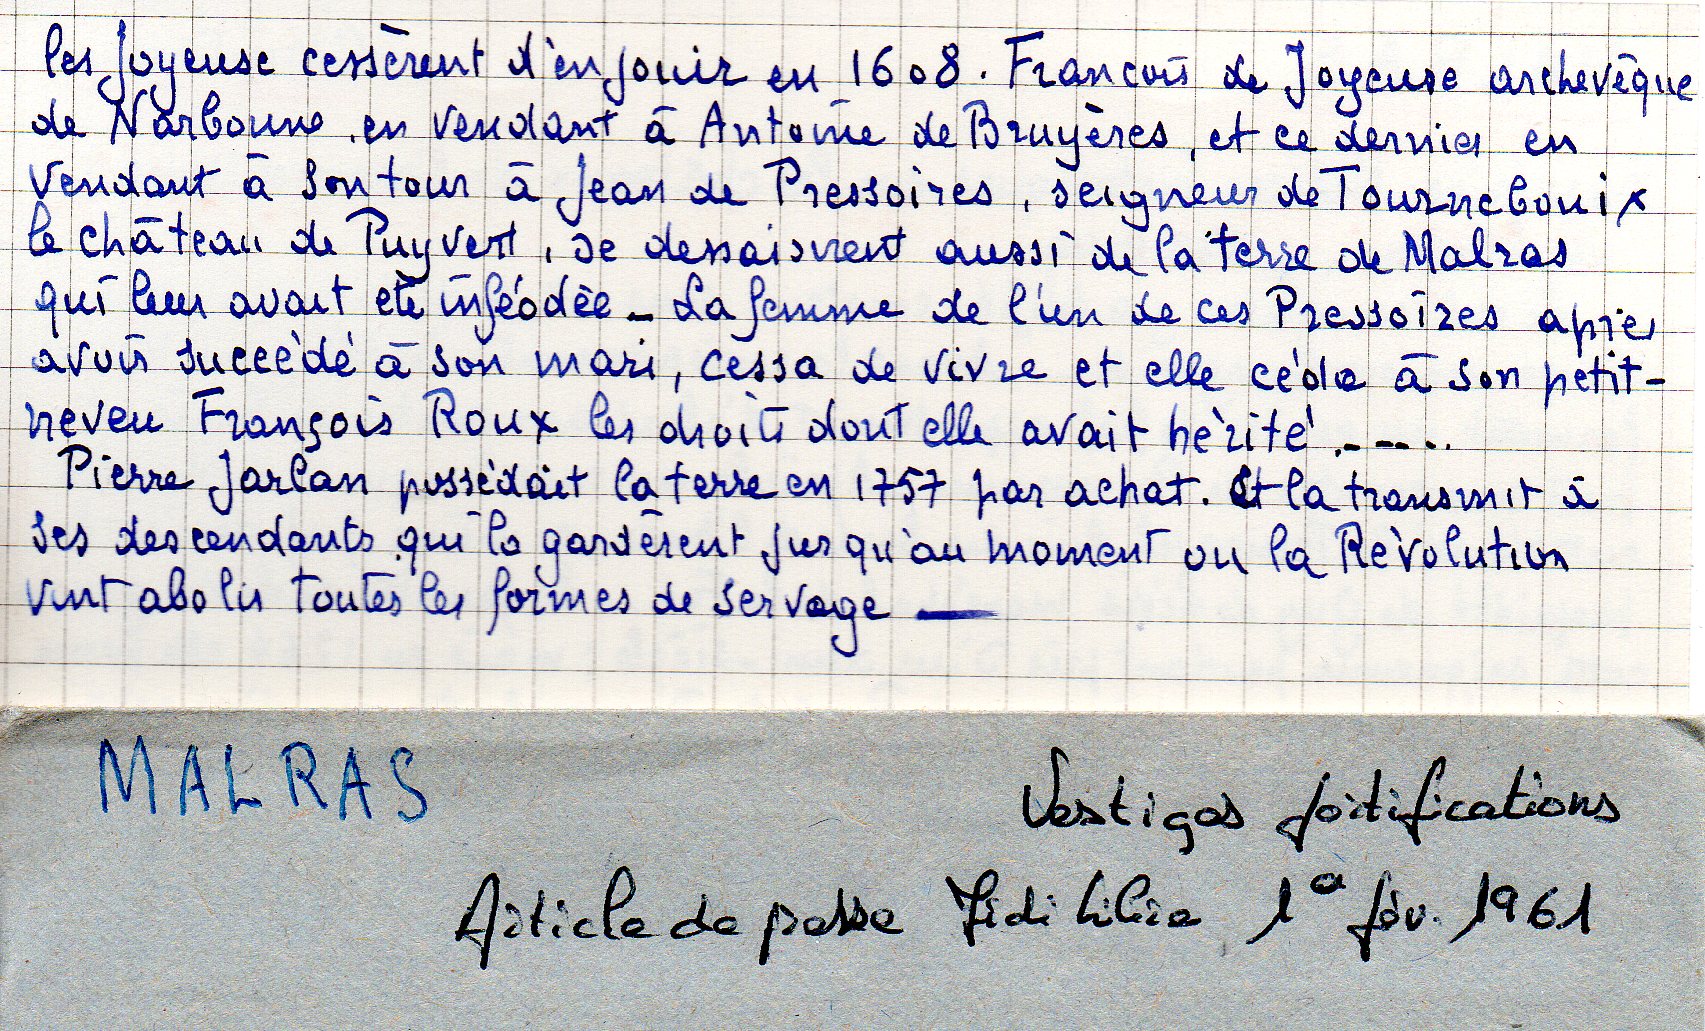 les Joyeuse cessèrent d'en jouir en 1608. François de Joyeuse archevêque
de Narbonne, en vendant à Antoine de Bruyères, et ce dernier en
vendant à son tour à Jean de Pressoires, seigneur de Tournebouix
le château de Puyvert, se dessaisirent aussi de la terre de Malras
qui leur avait été inféodée _ La femme de l'un de ces Pressoires après
avoir succédé à son mari, cessa de vivre et elle céda à son petit-
neveu François Roux les droits dont elle avait hérité .----..
Pierre Jarlan possédait la terre en 1757 par achat. Et la transmit à
ses descendants qui la gardèrent jusqu'au moment ou la Révolution
vint abolir toutes les formes de servage —
MALRAS
Vestiges fortifications
Article de presse Midi Libre 1er fév. 1961